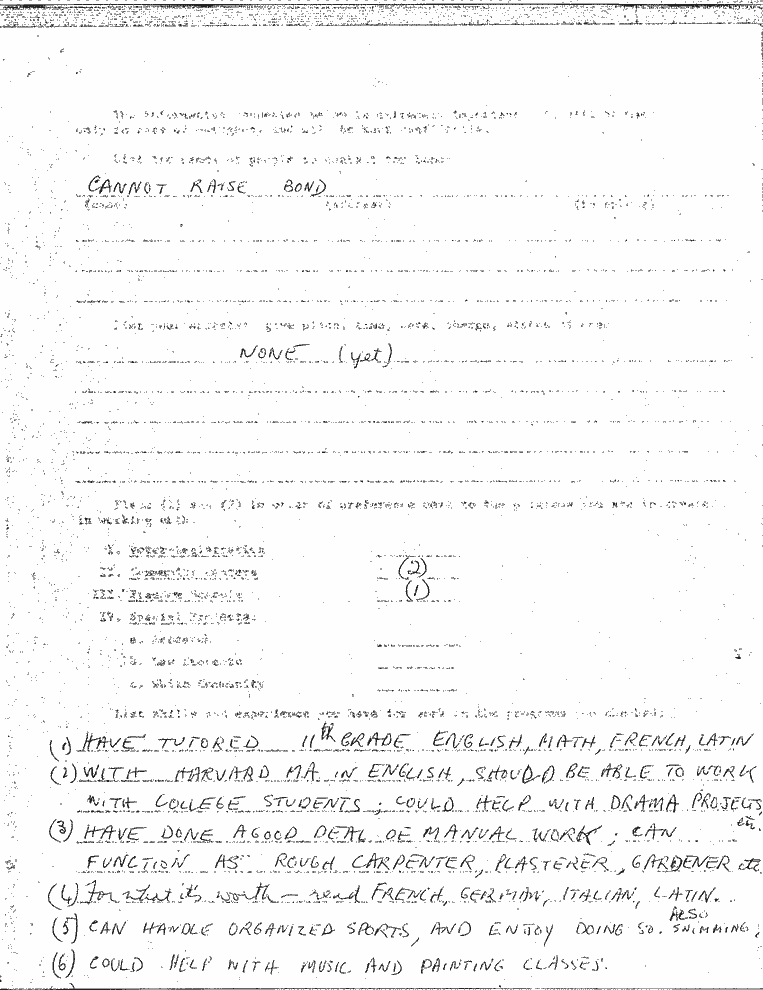 The information requested below is extremely important. It will be used
only in case of emergency, and will be kept confidential.
List the names of people to contact for bond:
CANNOT RAISE BOND
(name) (address)
List your arrests: give place, time, date, charge, status of case
NONE (yet)
Place (1) and (2) in order of preference next to the programs you are interested
in working with.
I. Voter-Registration
II. Community Centers (2)
III. Freedom Schools (1)
IV. Special Projects:
a. Research
b. Law Students
c. White Community
List skills and experience you have for work in the programs you checked:
(1) HAVE TUTORED 11th GRADE ENGLISH, MATH, FRENCH, LATIN
(2) WITH HARVARD MA IN ENGLISH, SHOULD BE ABLE TO WORK
WITH COLLEGE STUDENTS; COULD HELP WITH DRAMA PROJECTS, etc.
(3) HAVE DONE A GOOD DEAL OF MANUAL WORK; CAN
FUNCTION AS ROUGH CARPENTER, PLASTERER, GARDENER etc
(4) For what it's worth — read FRENCH, GERMAN, ITALIAN, LATIN.
(5) CAN HANDLE ORGANIZED SPORTS, AND ENJOY DOING SO. ALSO SWIMMING;
(6) COULD HELP WITH MUSIC AND PAINTING CLASSES.